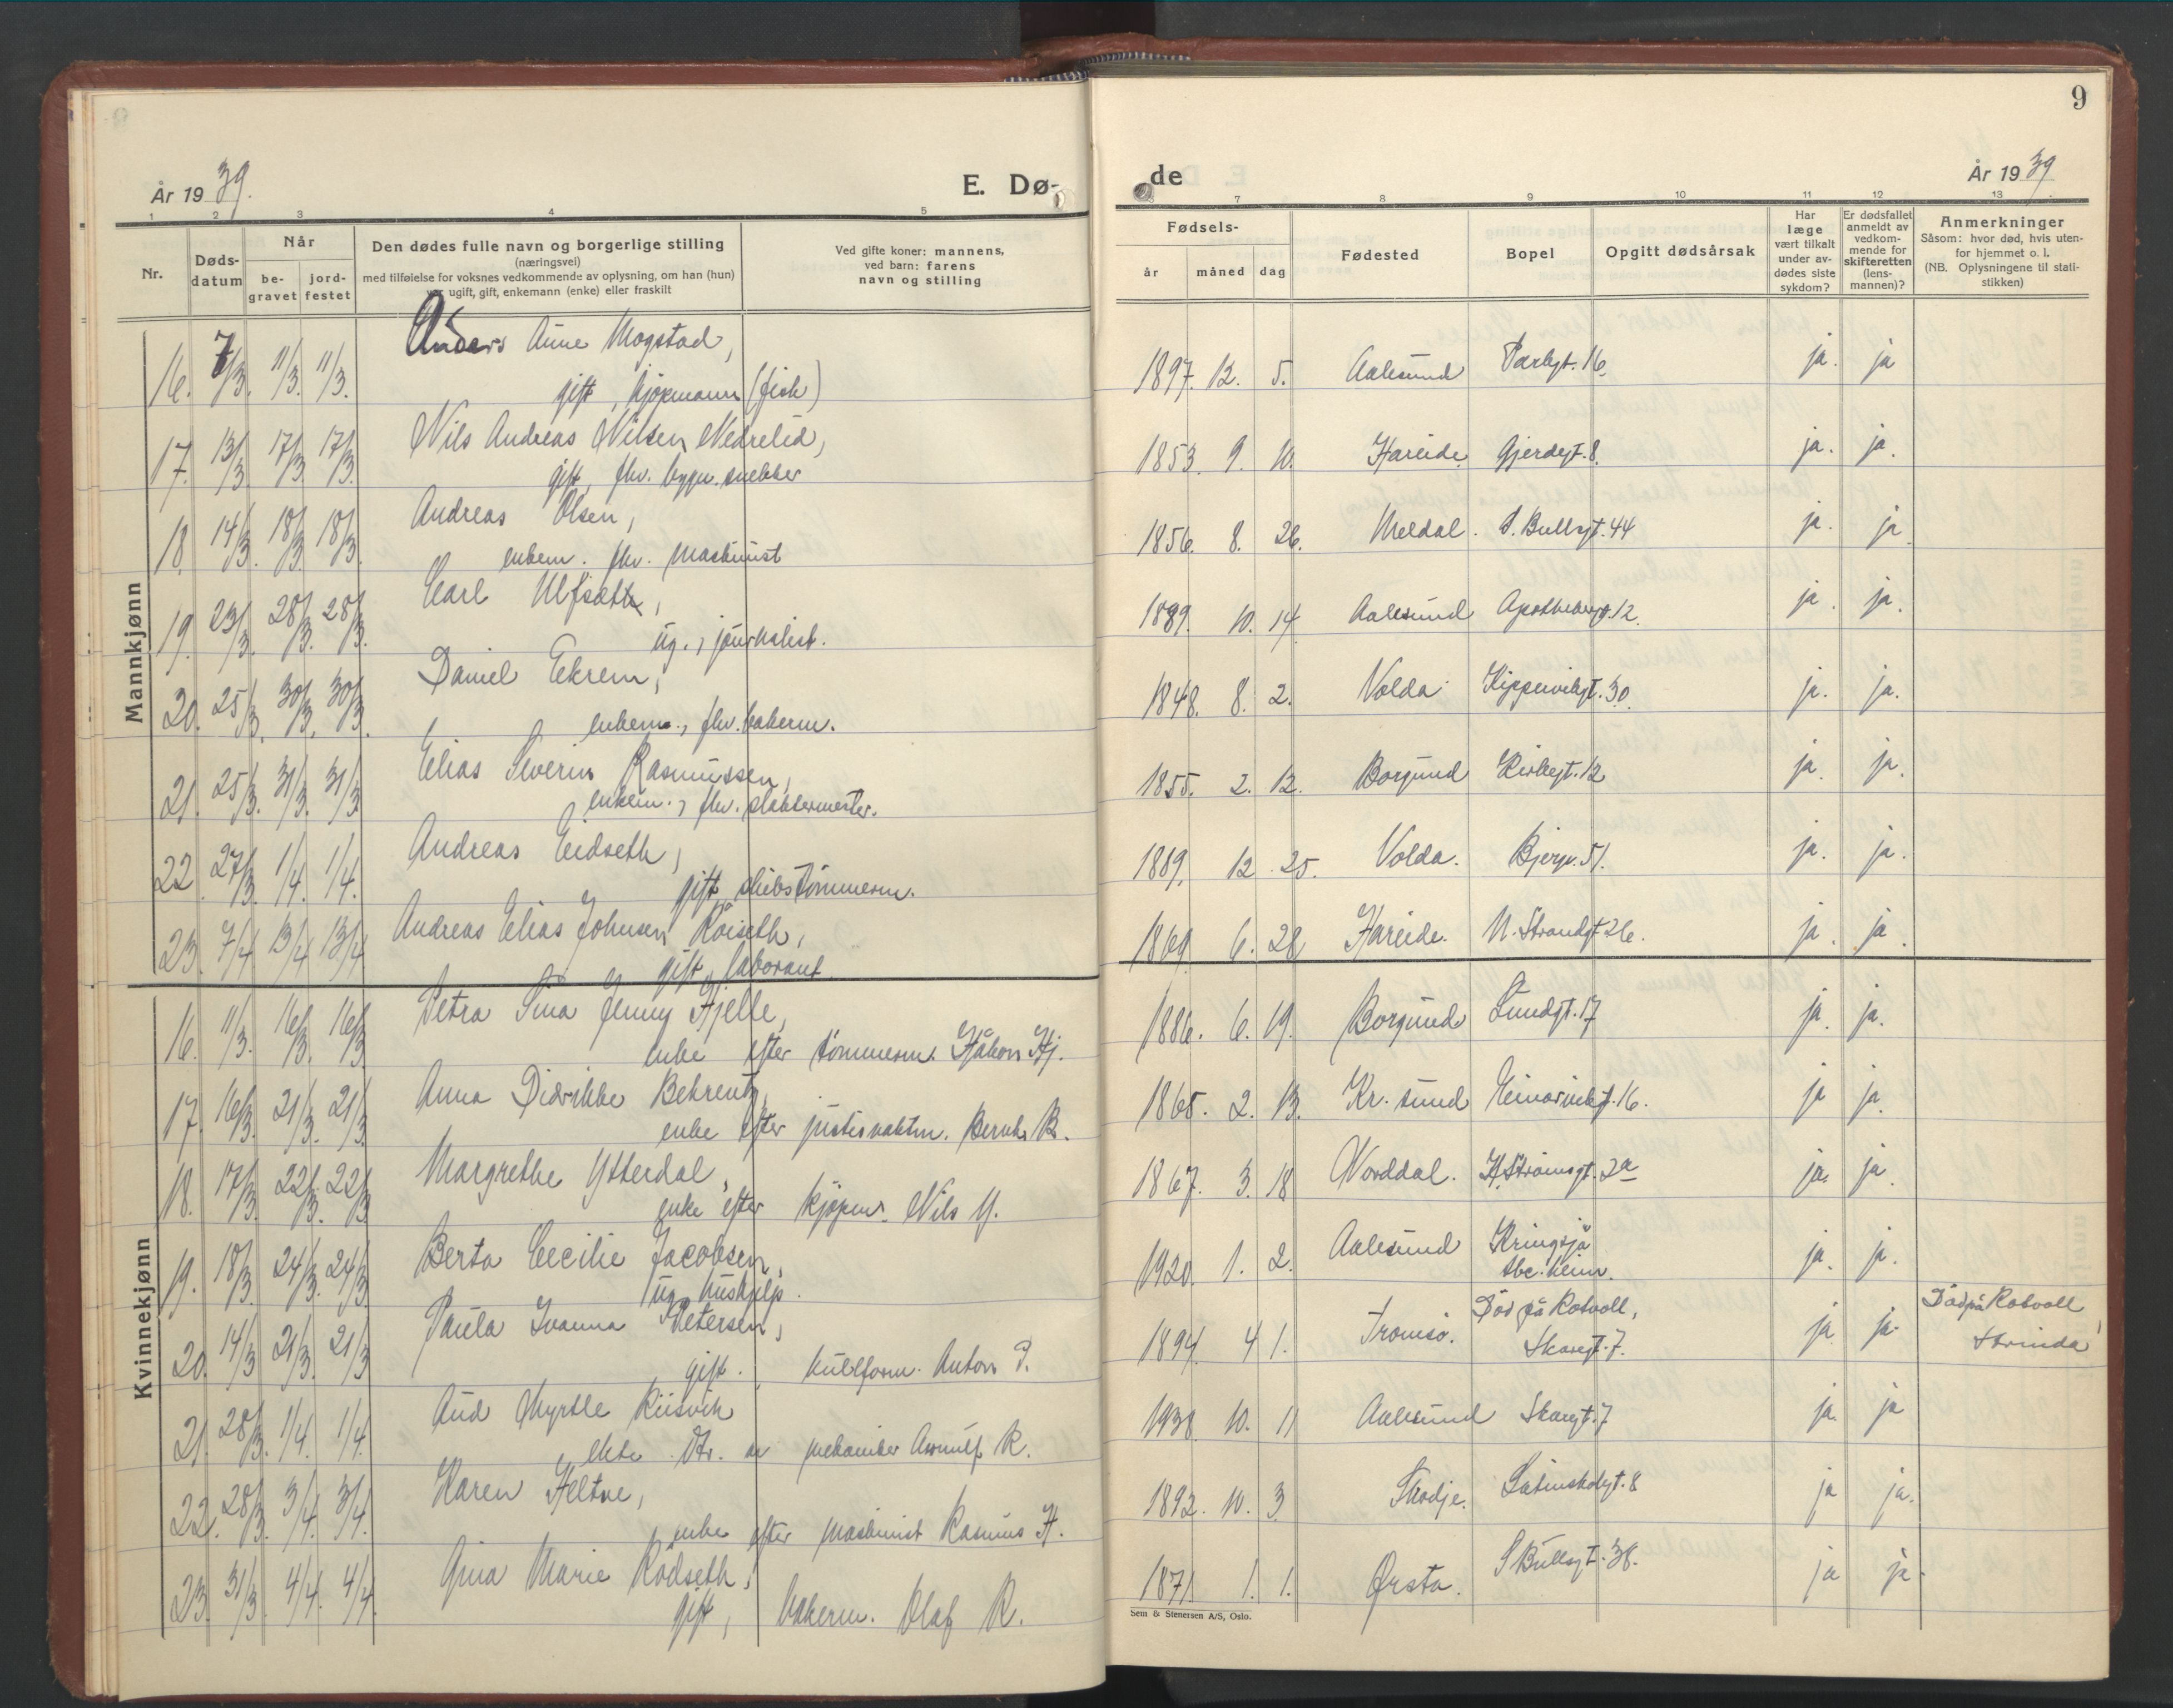 9
År 1939.
E. Dø-
de
År 1939
1 2 3 4 5
7 8 9 10 11 12 13
Nr.
Døds-
datum
Når
be-
gravet
jord-
festet
Den dødes fulle navn og borgerlige stilling
(næringsvei)
med tilføielse for voksnes vedkommende av oplysning, om han (hun)
var ugift, gift, enkemann (enke) eller fraskilt
Ved gifte koner: mannens,
ved barn: farens
navn og stilling
Fødsels-
år måned dag
Fødested
Bopel
Opgitt dødsårsak
Har
læge
vært tilkalt
under av-
dødes siste
sykdom?
Er dødsfallet
anmeldt av
vedkom-
mende for
skifteretten
(lens-
mannen)?
Anmerkninger
Såsom: hvor død, hvis uten-
for hjemmet o. l.
(NB. Oplysningene til stati-
stikken)
Mannkjønn
16. 7/3. 11/3. 11/3. Anders Aune Mogstad,
gift, kjøpmann (fisk)
1897. 12. 5. Aalesund Parkgt. 16. ja. ja
17. 13/3 17/3 17/3. Nils Andreas Nilsen Nedrelid,
gift, fhv. bygn. snekker
1853. 9. 10. Hareide Gjerdegt. 8. ja. ja.
18. 14/3. 18/3. 18/3. Andreas Olsen,
enkem. fhv. maskinist
1856. 8. 26. Meldal. O. Bullsgt. 44 ja. ja.
19. 23/3. 28/3. 28/3. Carl Ulfseth,
ug., journalist.
1889. 10. 14. Aalesund Apothekerg. 12. ja. ja.
20. 25/3. 30/3. 30/3. Daniel Ekrem,
enkem., fhv. bakerm.
1848. 8. 2. Volda Kippervikgt. 30. ja. ja.
21. 25/3. 31/3. 31/3 Elias Severin Rasmussen,
enkem., fhv. slaktermester.
1855. 2. 12. Borgund Kirkegt. 12 ja. ja.
22. 27/3. 1/4. 1/4. Andreas Eidseth,
gift, skibstømmerm.
1889. 12. 25. Volda. Bjergv. 51. ja. ja.
23. 7/4 13/4 13/4 Andreas Elias Johnsen Röiseth,
gift, laborant
1869 6. 28 Hareide. N. Strandgt 26. ja. ja.
Kvinnekjønn
16. 11/3. 16/3. 16/3 Petra Sina Jenny Hjelle,
enke efter tømmerm. Håkon Hj.
1886. 6. 19. Borgund Lundgt. 17 ja. ja.
17. 16/3. 21/3. 21/3. Anna Didrikke Behrentz,
enke efter justisvaktm. Bernh. B.
1865. 2. 13. Kr. sund Einarvikgt. 16. ja ja.
18. 17/3. 22/3. 22/3 Margrethe Ytterdal,
enke efter kjøpm. Nils Y.
1867. 3. 18 Norddal. K. Strømsgt. 2a ja. ja.
19. 18/3 24/3. 24/3. Berta Cecilie Jacobsen,
ug. hushjelp.
1920. 1. 2. Aalesund Kringsjå
tbc. heim. ja. ja.
20. 14/3 21/3. 21/3 Paula Ivanna Petersen,
gift. kullform. Anton P.
1894. 4 1. Tromsø. Död på Rotvoll,
Skaregt. 7. ja ja. Död på Rotvoll,
Strinda
21. 28/3. 1/4. 1/4. Aud Myrtle Riisvik
ekte dtr. av mekaniker Arnulf R.
1938. 10. 11 Aalesund Skaregt. 7 ja. ja
22. 28/3. 3/4. 3/4. Karen Heltne,
enke efter maskinist Rasmus H.
1892. 10. 3 Skodje. Latinskolegt. 8 ja ja.
23. 31/3. 4/4. 4/4. Gina Marie Rödseth,
gift, bakerm. Olaf R.
1871 1. 1. Ørsta. O Bullsgt. 38. ja ja.
Sem & Stenersen A/S, Oslo.